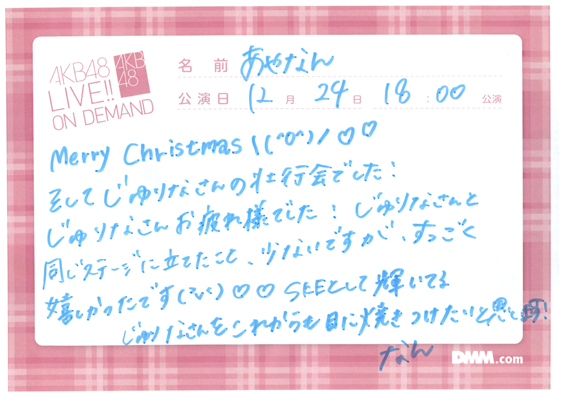 AKB48
LIVE!!
ON DEMAND
AKB
48
名 前 あやなん
公演日 12 月 24 日 18 : 00 公演
Merry Christmas \(^o^)/♡♡
そしてじゅりなさんの壮行会でした!
じゅりなさんお疲れ様でした! じゅりなさんと
同じステージに立てたこと、少ないですが、すっごく
嬉しかったです(^v^)♡♡ SKEとして輝いてる
じゅりなさんをこれからも目に焼きつけたいと思
なん
DMM.com